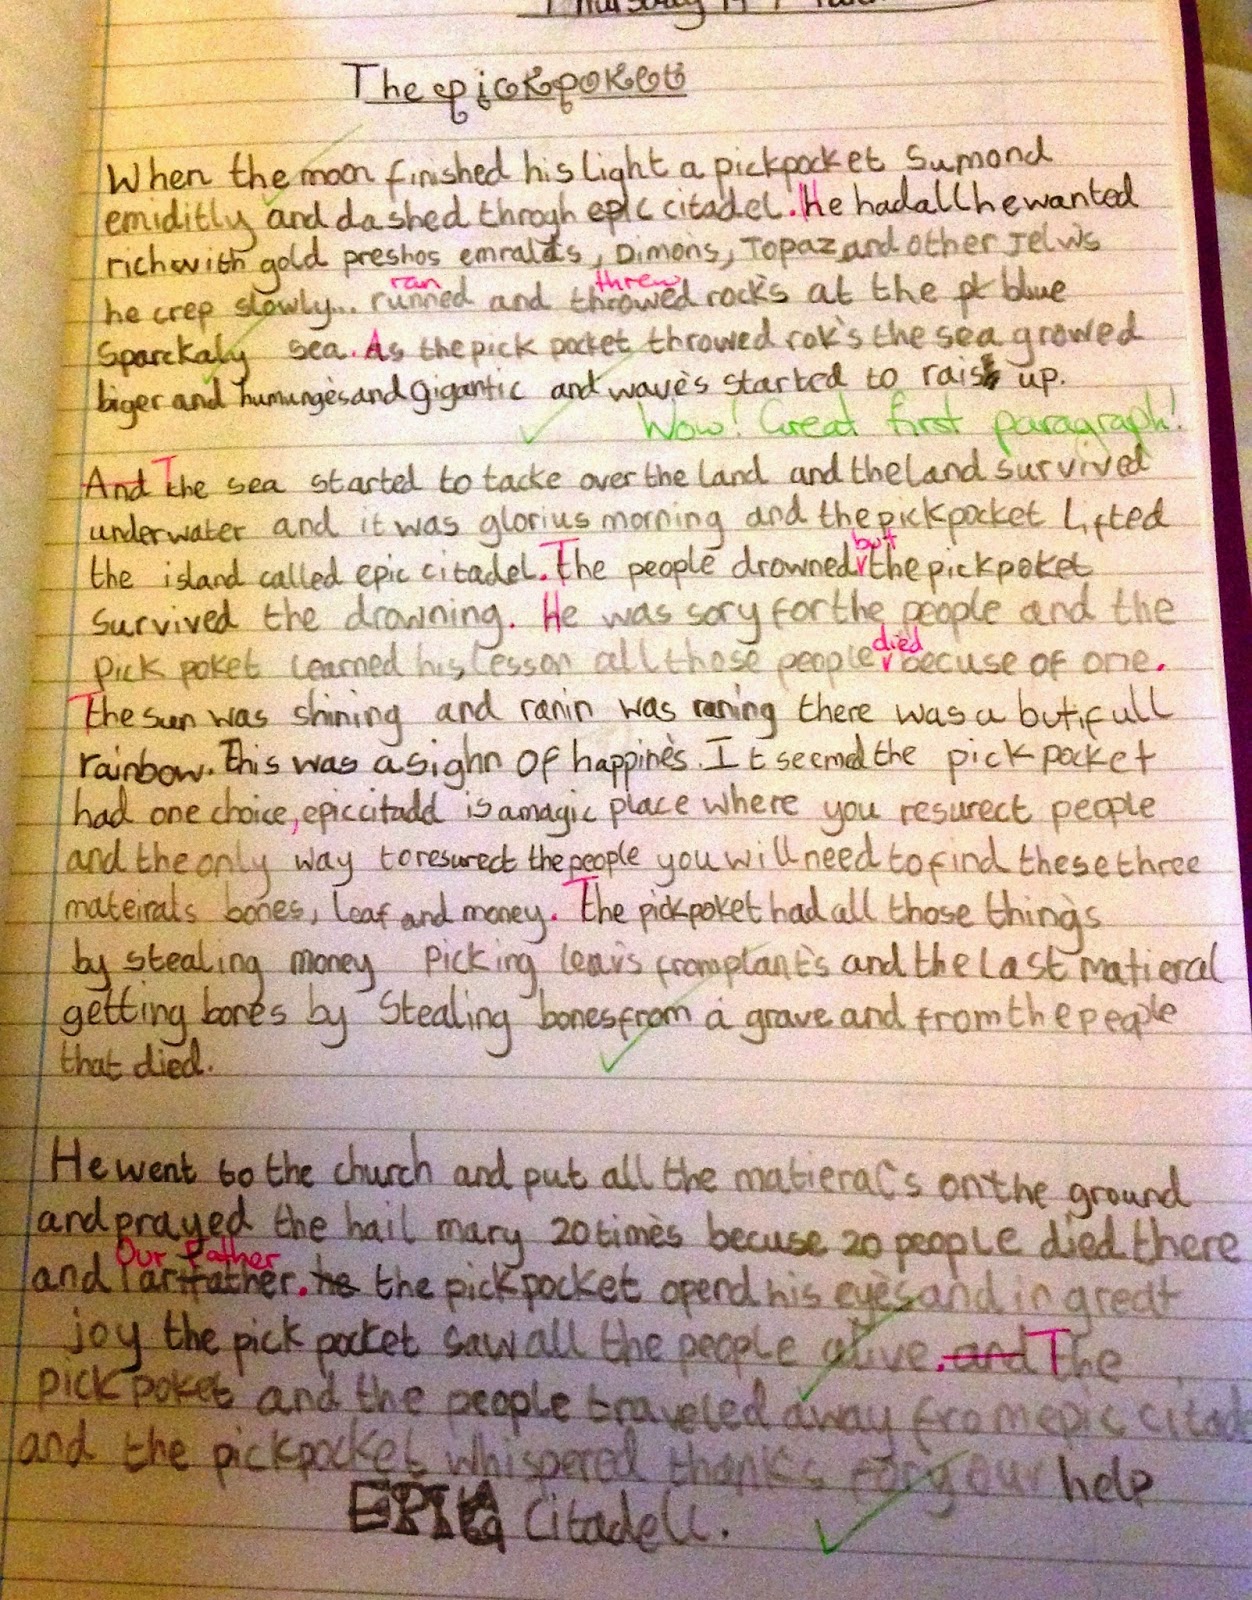 Thursday
The epickpoket
When the moon finished his light a pickpocket Sumond
emiditly and dashed throgh epic citadel. He had all he wanted
rich with gold preshos emralds, Dimons, Topaz and other Jelws
ran threw
he crep slowly... runned and throwed rocks at the pt blue
Sparckaly sea. As the pick pocket throwed rok's the sea growed
biger and humunges and gigantic and waves started to rais up.
Wow! Great first paragraph!
And The sea started to tacke over the land and the land survived
underwater and it was glorius morning and the pickpocket Lifted
but
the island called epic citadel. The people drowned the pickpoket
survived the drowning. He was sory for the people and the
died
pick poket learned his lesson all those people becuse of one.
The sun was shining and ranin was raning there was a butifull
rainbow. This was a sighn of happines. It seemed the pick pocket
had one choice, epic citadd is a magic place where you resurect people
and the only way to resurect the people you will need to find these three
mateirals bones, leaf and money. The pickpoket had all those things
by stealing money Picking leavs from plants and the last matieral
getting bones by Stealing bones from a grave and from the people
that died.
He went to the church and put all the matierals on the ground
and prayed the hail mary 20 times becuse 20 people died there
Our Father
and 1 arfather. he the pickpocket opend his eyes and in great
joy the pick pocket saw all the people alive. and The
pick poket and the people traveled away from epic citade
and the pickpocket whispered thanks for your help
EPIC Citadell.